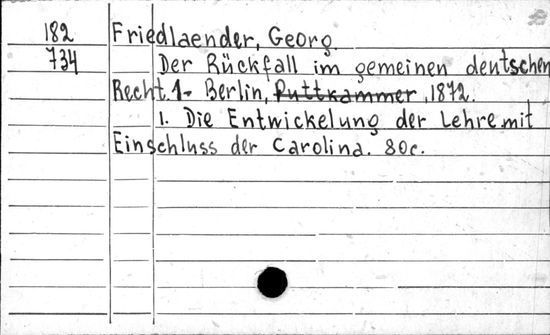 182 Friedlaender, Georg.
734 Der Rückfall im gemeinen deutschen
Recht. 1- Berlin, Puttkammer, 1872.
1. Die Entwickelung der Lehre mit
Einschluss der Carolina. 80c.